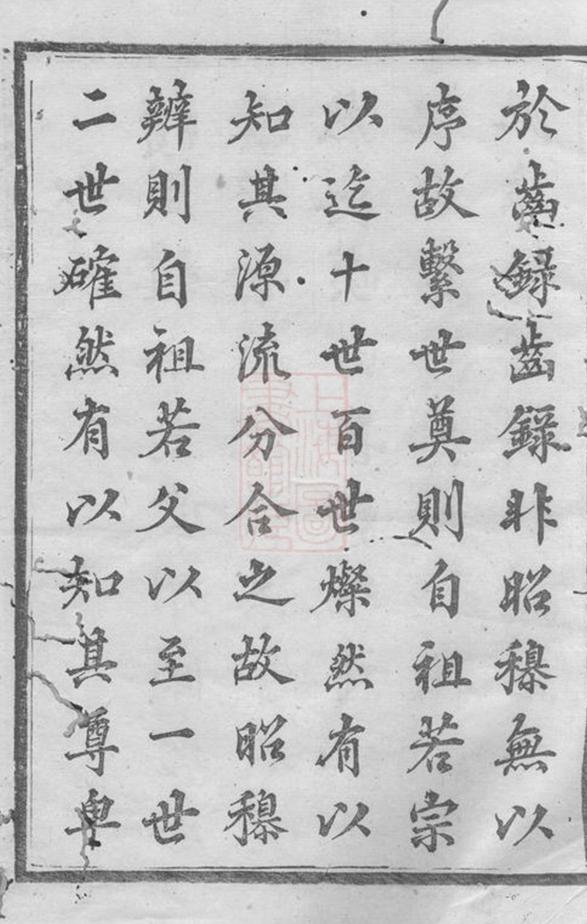 於齒錄齒錄非昭穆無以
序故繫世奠則自祖若宗
以迄十世百世燦然有以
知其源流分合之故昭穆
辨則自祖若父以至一世
二世確然有以知其尊卑